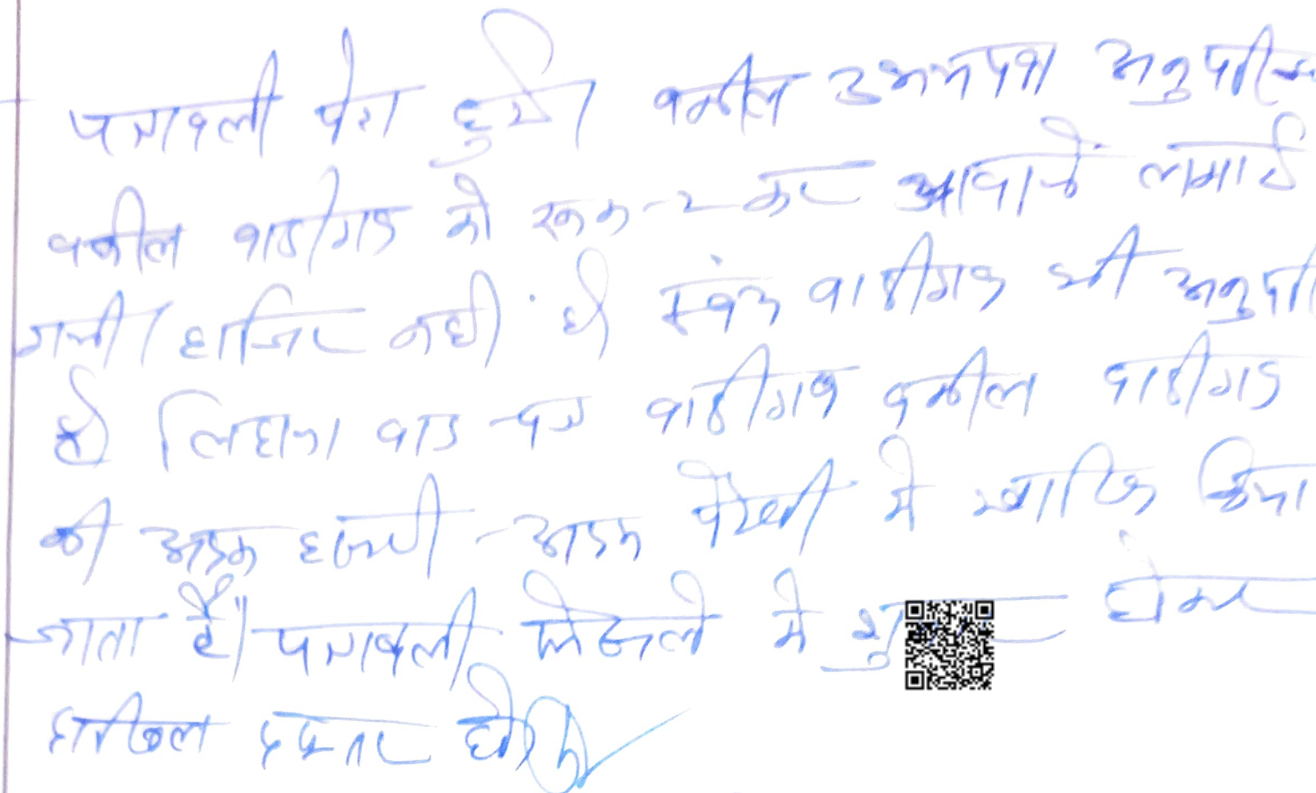 पत्रावली पेश हुयी। वकील उभयपक्ष अनुपस्थि
वकील वादीगण को रूक-२ कर आवाजें लगाई
गयी। हाजिर नहीं है। स्वंय वादीगण भी अनुप
है। लिहाजा वाद पत्र वादीगण वकील वादीगण
की अदम हाजरी - अदम पैरवी में खारिज किया
जाता है।" पत्रावली फैसले में होकर
दाखिल दफ्तर हो।